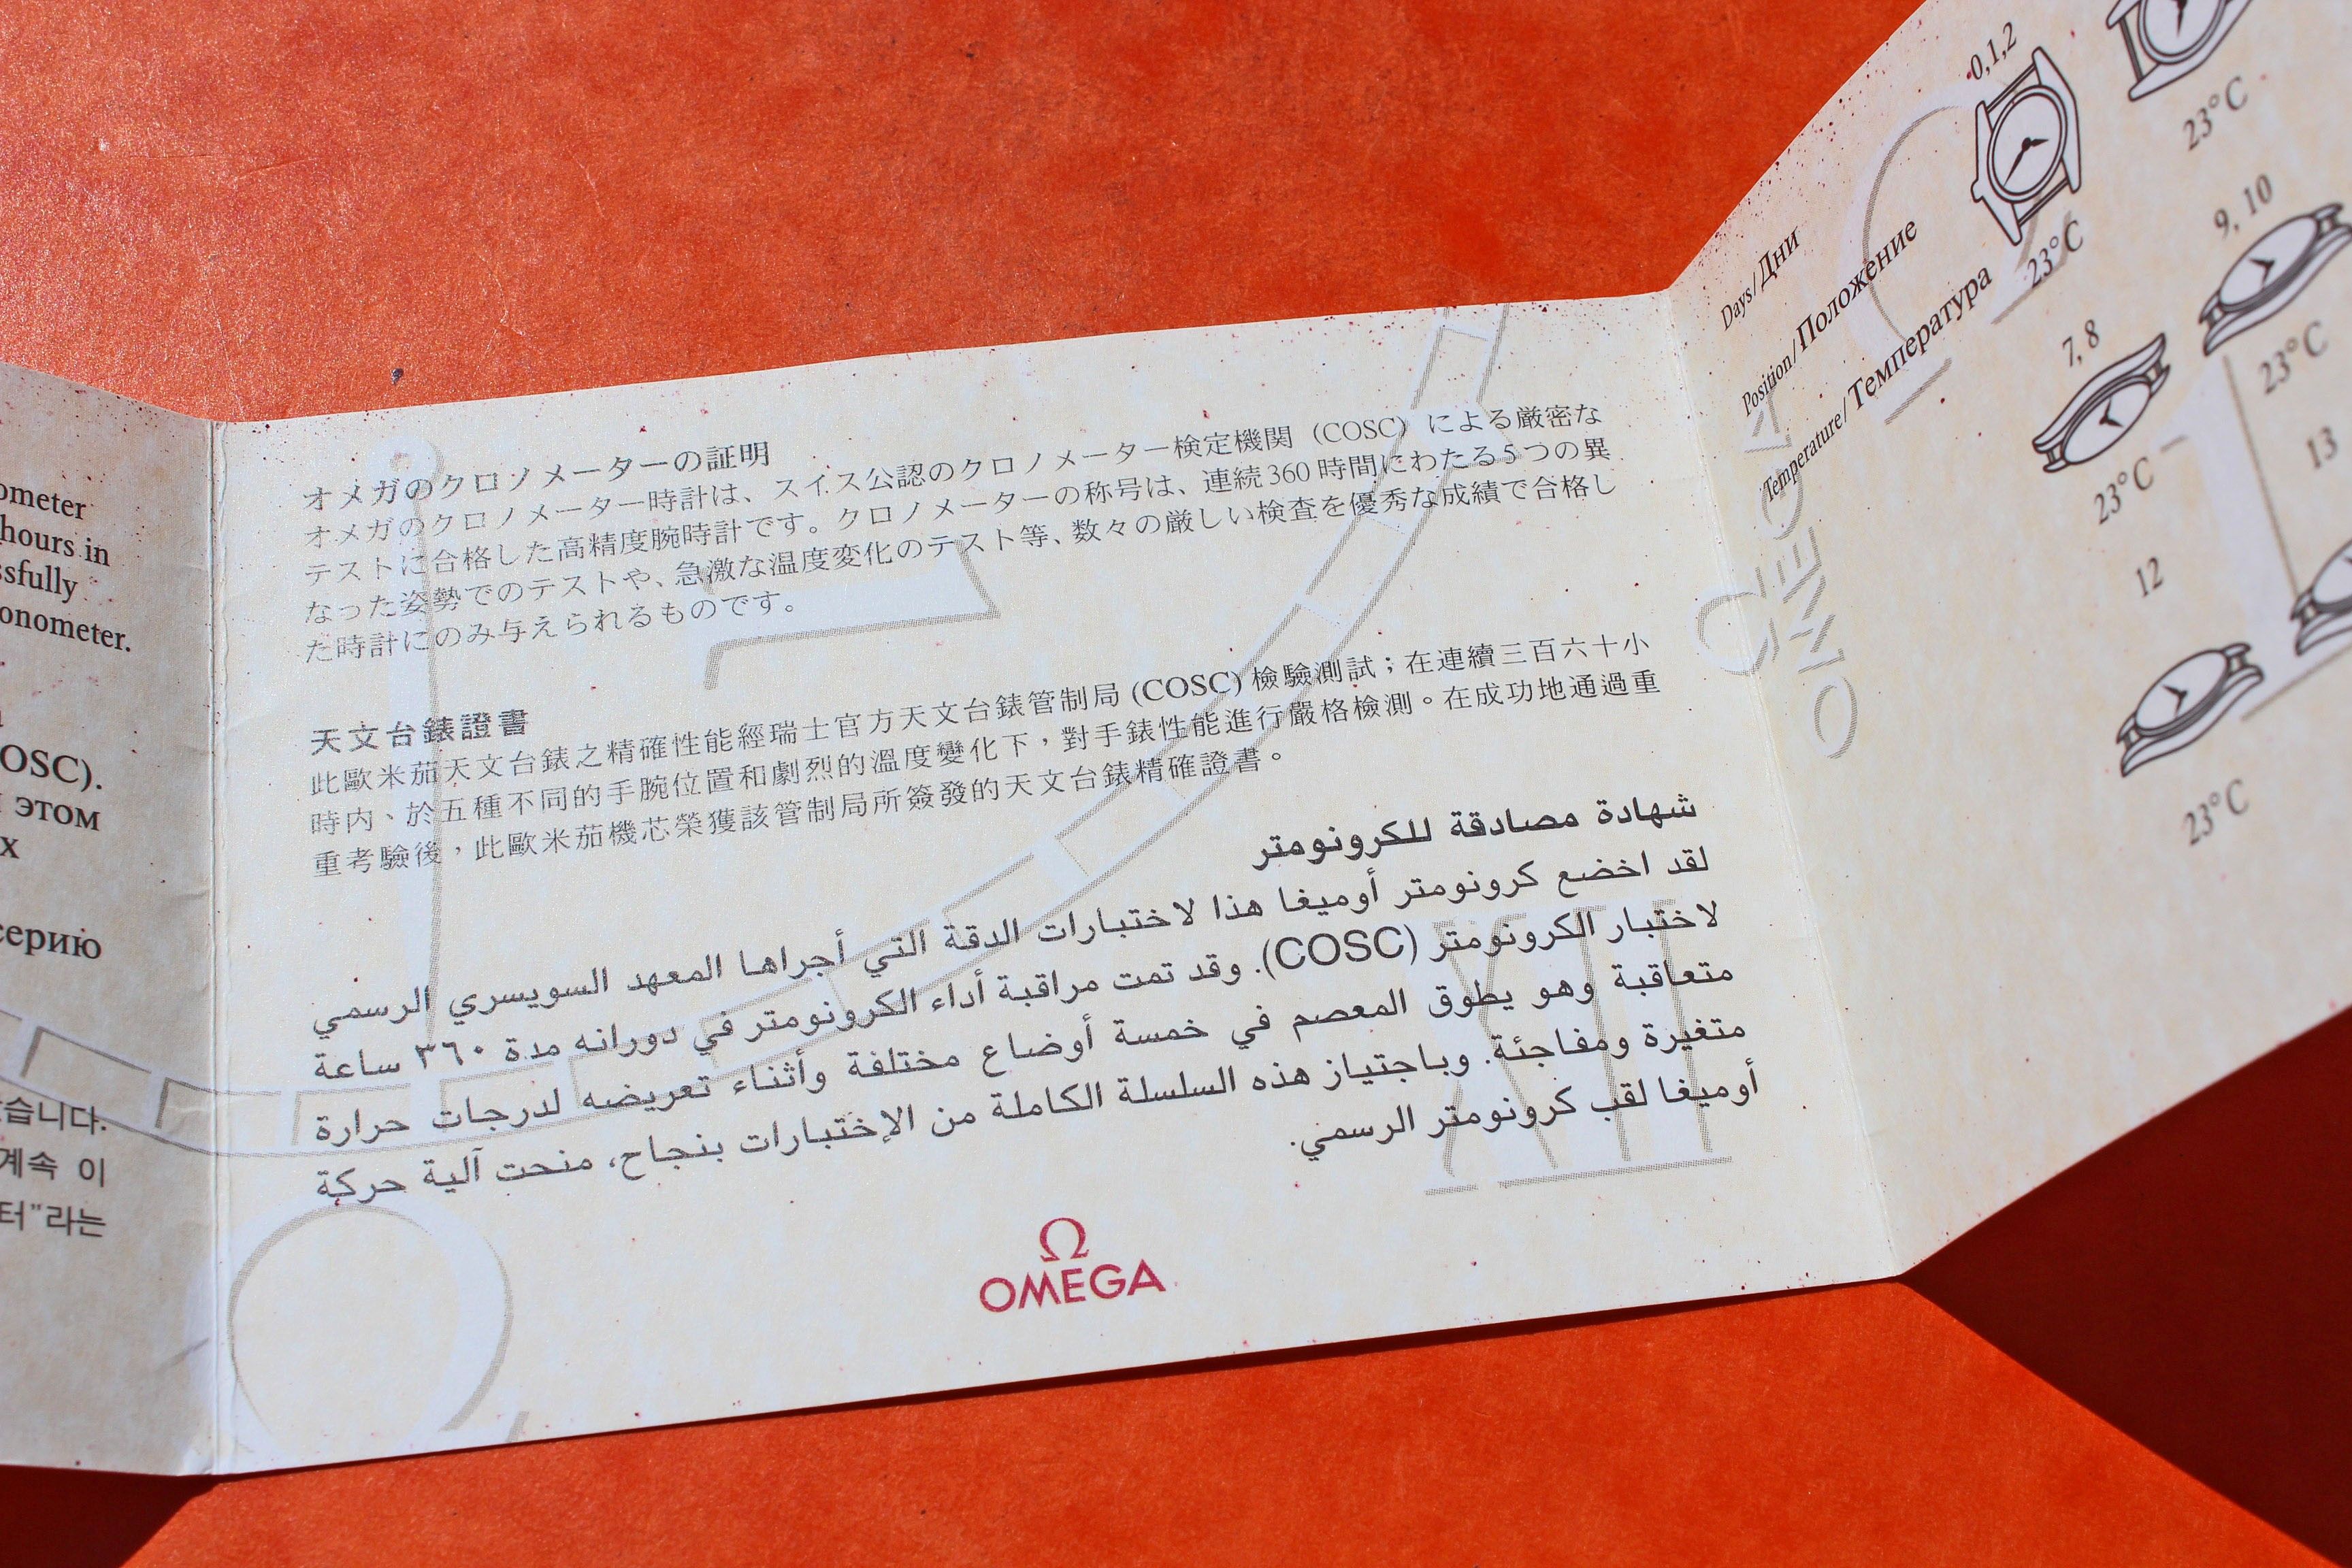 ometer
hours in
ssfully
onometer.
OSC).
этом
х
серию
습니다.
계속 이
터"라는
オメガのクロノメーターの証明
オメガのクロノメーター時計は、スイス公認のクロノメーター検定機関（COSC）による厳密な
テストに合格した高精度腕時計です。クロノメーターの称号は、連続360時間にわたる5つの異
なった姿勢でのテストや、急激な温度変化のテスト等、数々の厳しい検査を優秀な成績で合格し
た時計にのみ与えられるものです。
天文台錶證書
此歐米茄天文台錶之精確性能經瑞士官方天文台錶管制局 (COSC) 檢驗測試；在連續三百六十小
時内、於五種不同的手腕位置和劇烈的溫度變化下，對手錶性能進行嚴格檢測。在成功地通過重
重考驗後，此歐米茄機芯榮獲該管制局所簽發的天文台錶精確證書。
شهادة مصادقة للكرونومتر
لقد اخضع كرونومتر أوميغا هذا لاختبارات الدقة التي أجراها المعهد السويسري الرسمي
لاختبار الكرونومتر (COSC). وقد تمت مراقبة أداء الكرونومتر في دورانه مدة ٣٦٠ ساعة
متعاقبة وهو يطوق المعصم في خمسة أوضاع مختلفة وأثناء تعريضه لدرجات حرارة
متغيرة ومفاجئة. وباجتياز هذه السلسلة الكاملة من الإختبارات بنجاح، منحت آلية حركة
أوميغا لقب كرونومتر الرسمي.
Ω
OMEGA
Days/Дни
0,1,2
Position/Положение
Temperature/Температура
23°C
23°C
7, 8
9, 10
23°C
23°C
12
13
23°C
Ω
OMEGA